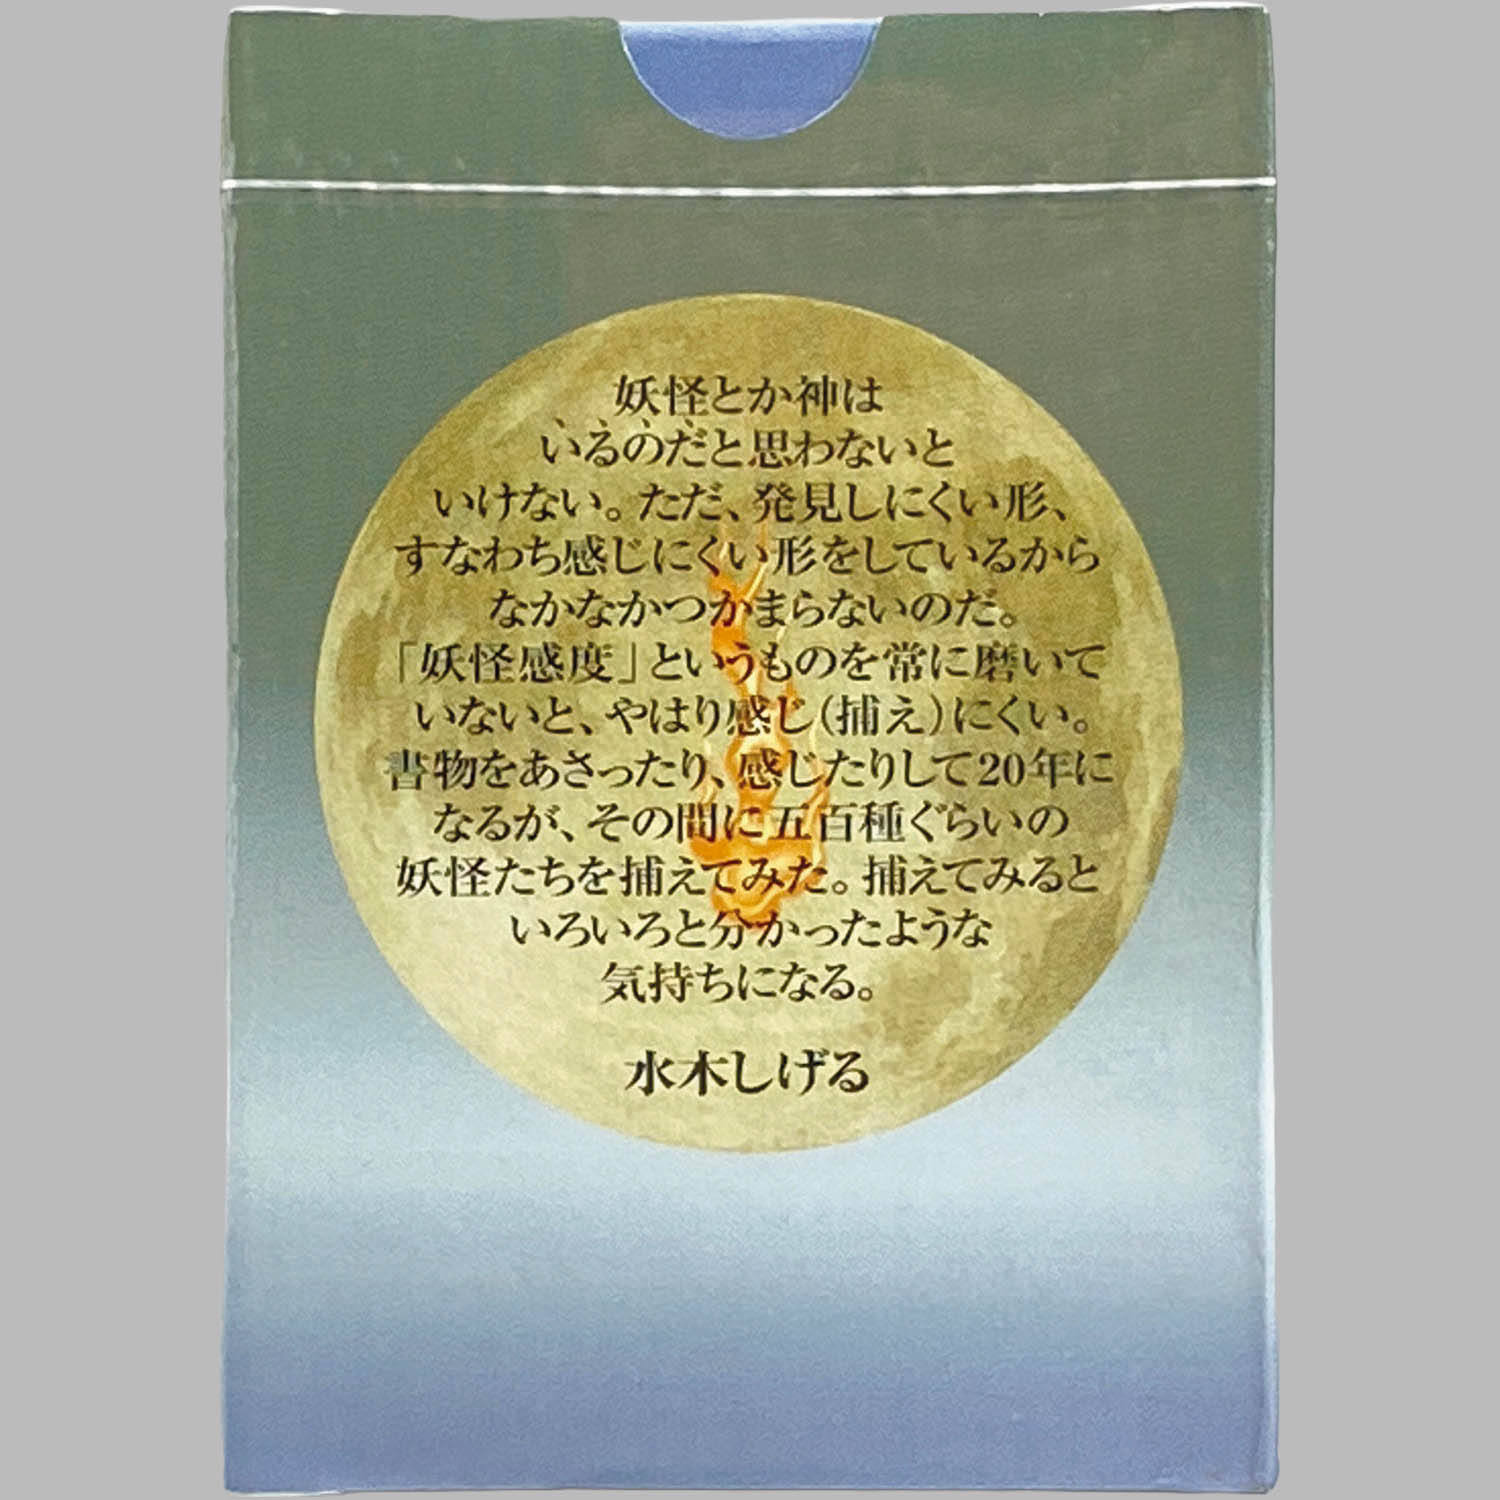 妖怪とか神は
いるのだと思わないと
いけない。ただ、発見しにくい形、
すなわち感じにくい形をしているから
なかなかつかまらないのだ。
「妖怪感度」というものを常に磨いて
いないと、やはり感じ(捕え)にくい。
書物をあさったり、感じたりして20年に
なるが、その間に五百種ぐらいの
妖怪たちを捕えてみた。捕えてみると
いろいろと分かったような
気持ちになる。
水木しげる